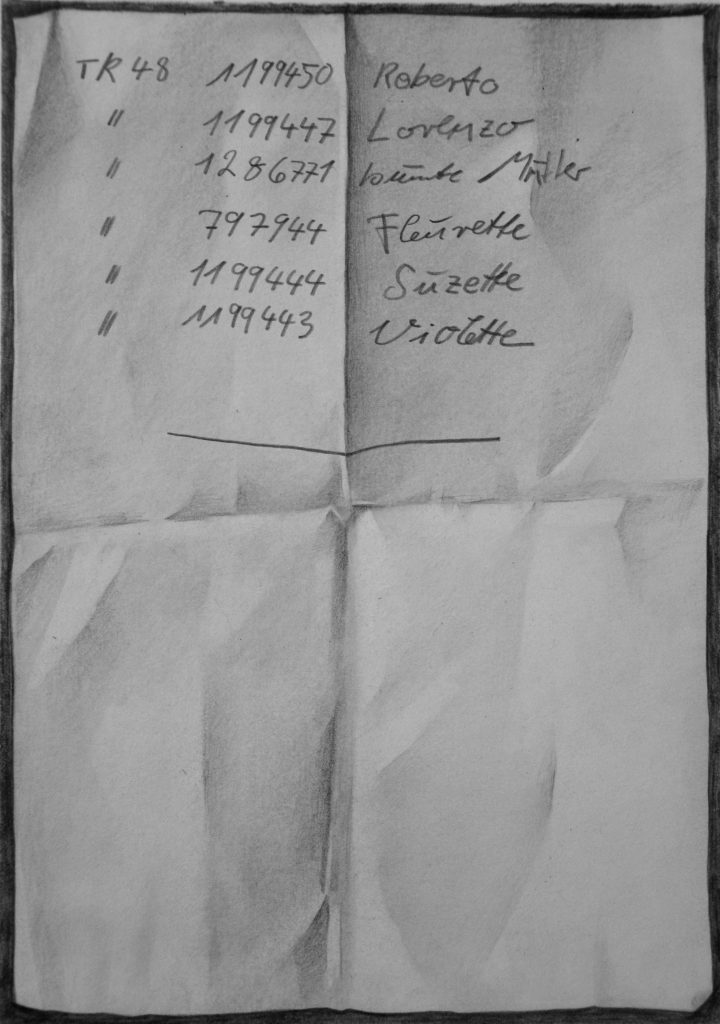 TR 48 1199450 Roberto
" 1199447 Lorenzo
" 1286771 bunte
" 797944 Fleurette
" 1199444 Suzette
" 1199443 Violette